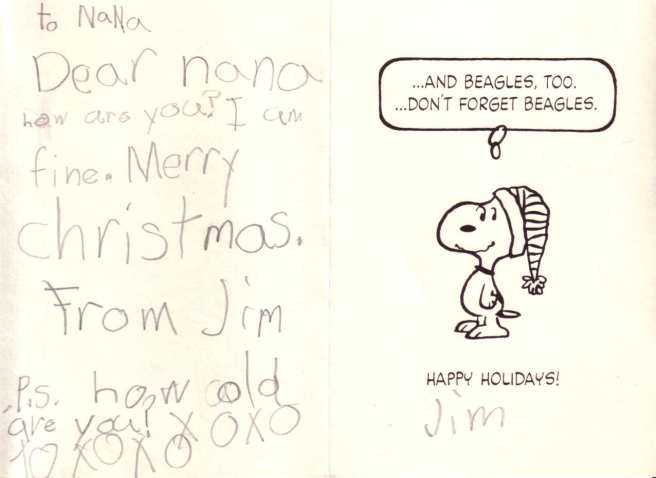 to NaNa
Dear nana
how are you? I am
fine. Merry
christmas.
From Jim
P.s. how old
are you? XOXO
XOXOXO
...AND BEAGLES, TOO.
...DON'T FORGET BEAGLES.
HAPPY HOLIDAYS!
Jim